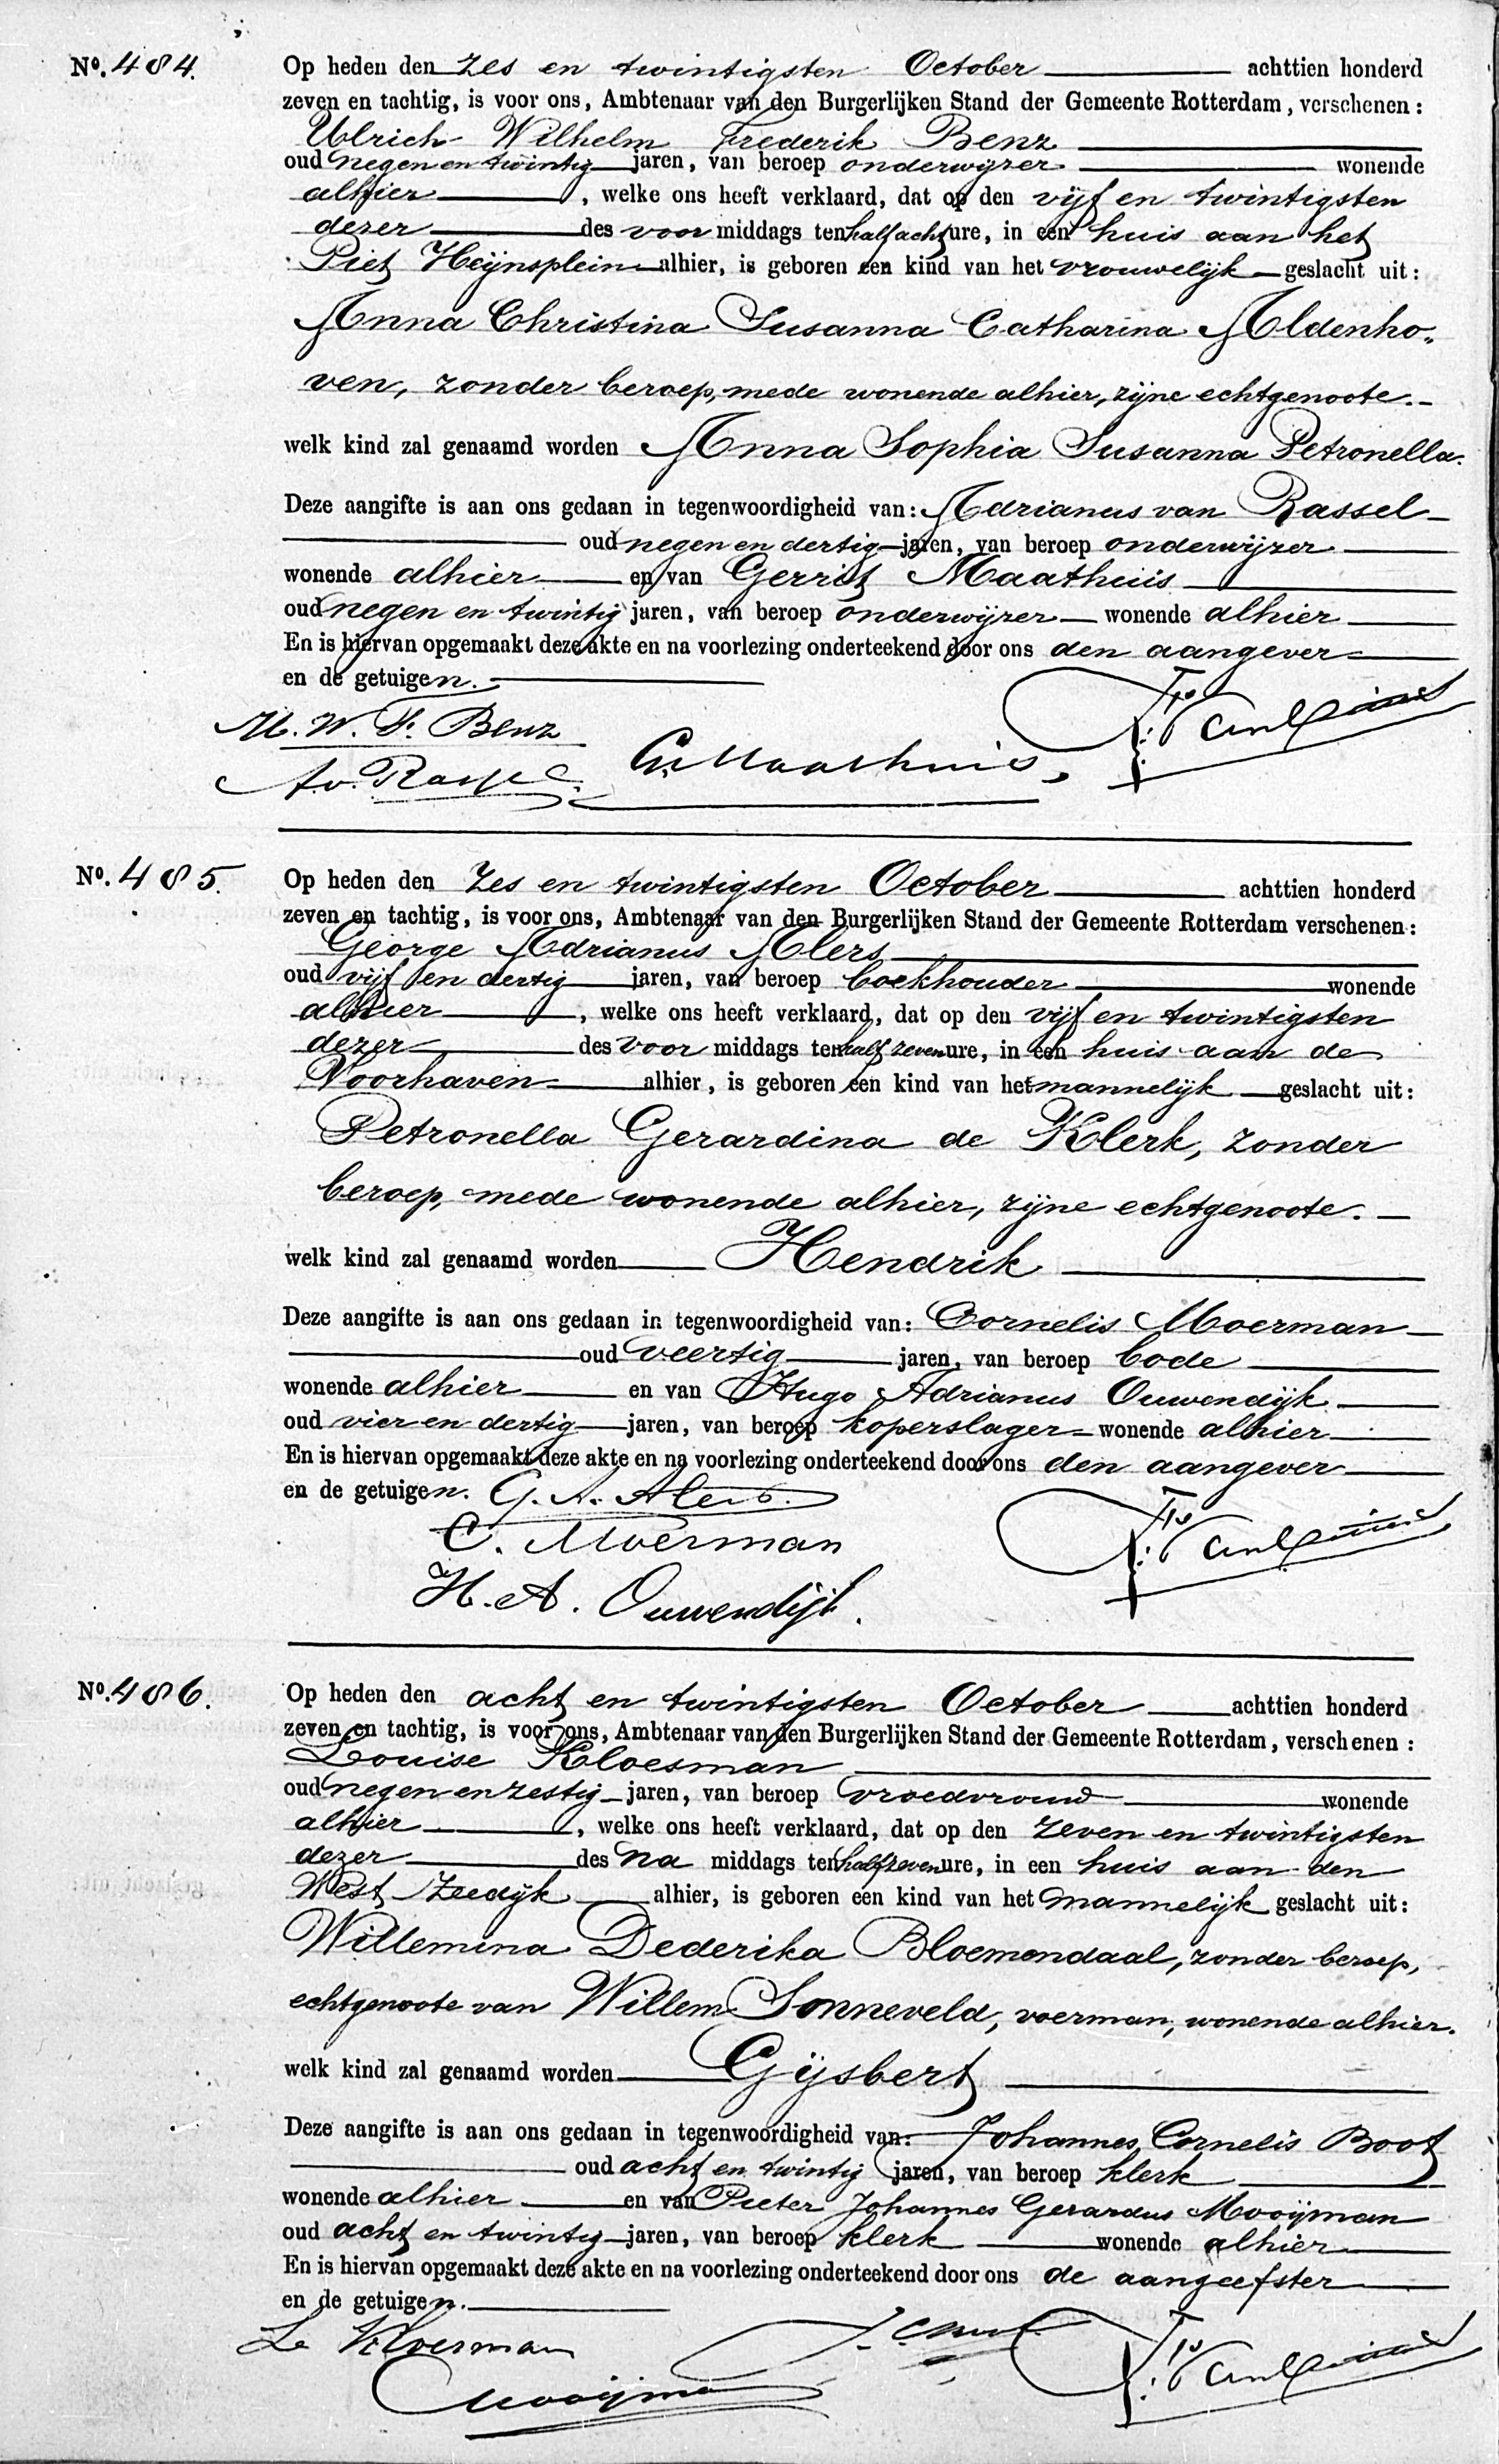 No. 484. Op heden den zes en twintigsten October achttien honderd
zeven en tachtig, is voor ons, Ambtenaar van den Burgerlijken Stand der Gemeente Rotterdam, verschenen:
Ulrich Wilhelm Frederik Benz
oud negen en twintig jaren, van beroep onderwijzer wonende
alhier, welke ons heeft verklaard, dat op den vijf en twintigsten
dezer des voor middags ten half acht ure, in een huis aan het
Piet Heijnsplein alhier, is geboren een kind van het vrouwelijk geslacht uit:
Anna Christina Susanna Catharina Aldenho„
ven, zonder beroep, mede wonende alhier, zijne echtgenoote.
welk kind zal genaamd worden Anna Sophia Susanna Petronella.
Deze aangifte is aan ons gedaan in tegenwoordigheid van: Adrianus van Rassel
oud negen en dertig jaren, van beroep onderwijzer
wonende alhier en van Gerrit Maathuis
oud negen en twintig jaren, van beroep onderwijzer wonende alhier
En is hiervan opgemaakt deze akte en na voorlezing onderteekend door ons den aangever
en de getuigen.
W. F. Benz
G. Maathuis
Av. Rassel
No. 485. Op heden den zes en twintigsten October achttien honderd
zeven en tachtig, is voor ons, Ambtenaar van den Burgerlijken Stand der Gemeente Rotterdam verschenen:
George Adrianus Alers
oud vijf en dertig jaren, van beroep boekhouder wonende
alhier, welke ons heeft verklaard, dat op den vijf en twintigsten
dezer des voor middags ten half zeven ure, in een huis aan de
Voorhaven alhier, is geboren een kind van het mannelijk geslacht uit:
Petronella Gerardina de Klerk, zonder
beroep, mede wonende alhier, zijne echtgenoote.
welk kind zal genaamd worden Hendrik
Deze aangifte is aan ons gedaan in tegenwoordigheid van: Cornelis Moerman
oud veertig jaren, van beroep bode
wonende alhier en van Hugo Adrianus Ouwendijk
oud vier en dertig jaren, van beroep koperslager wonende alhier
En is hiervan opgemaakt deze akte en na voorlezing onderteekend door ons den aangever
en de getuigen. G. A. Alers.
C. Moerman
H. A. Ouwendijk.
No. 486. Op heden den acht en twintigsten October achttien honderd
zeven en tachtig, is voor ons, Ambtenaar van den Burgerlijken Stand der Gemeente Rotterdam, verschenen:
Louise Kloesman
oud negen en zestig jaren, van beroep vroedvrouw wonende
alhier, welke ons heeft verklaard, dat op den zeven en twintigsten
dezer des na middags ten half zeven ure, in een huis aan den
West Zeedijk alhier, is geboren een kind van het mannelijk geslacht uit:
Willemina Dederika Bloemendaal, zonder beroep,
echtgenoote van Willem Sonneveld, voerman, wonende alhier.
welk kind zal genaamd worden Gijsbert
Deze aangifte is aan ons gedaan in tegenwoordigheid van: Johannes Cornelis Boot
oud acht en twintig jaren, van beroep klerk
wonende alhier en van Pieter Johannes Gerardus Mooijman
oud acht en twintig jaren, van beroep klerk wonende alhier
En is hiervan opgemaakt deze akte en na voorlezing onderteekend door ons de aangeefster
en de getuigen.
Mooijman